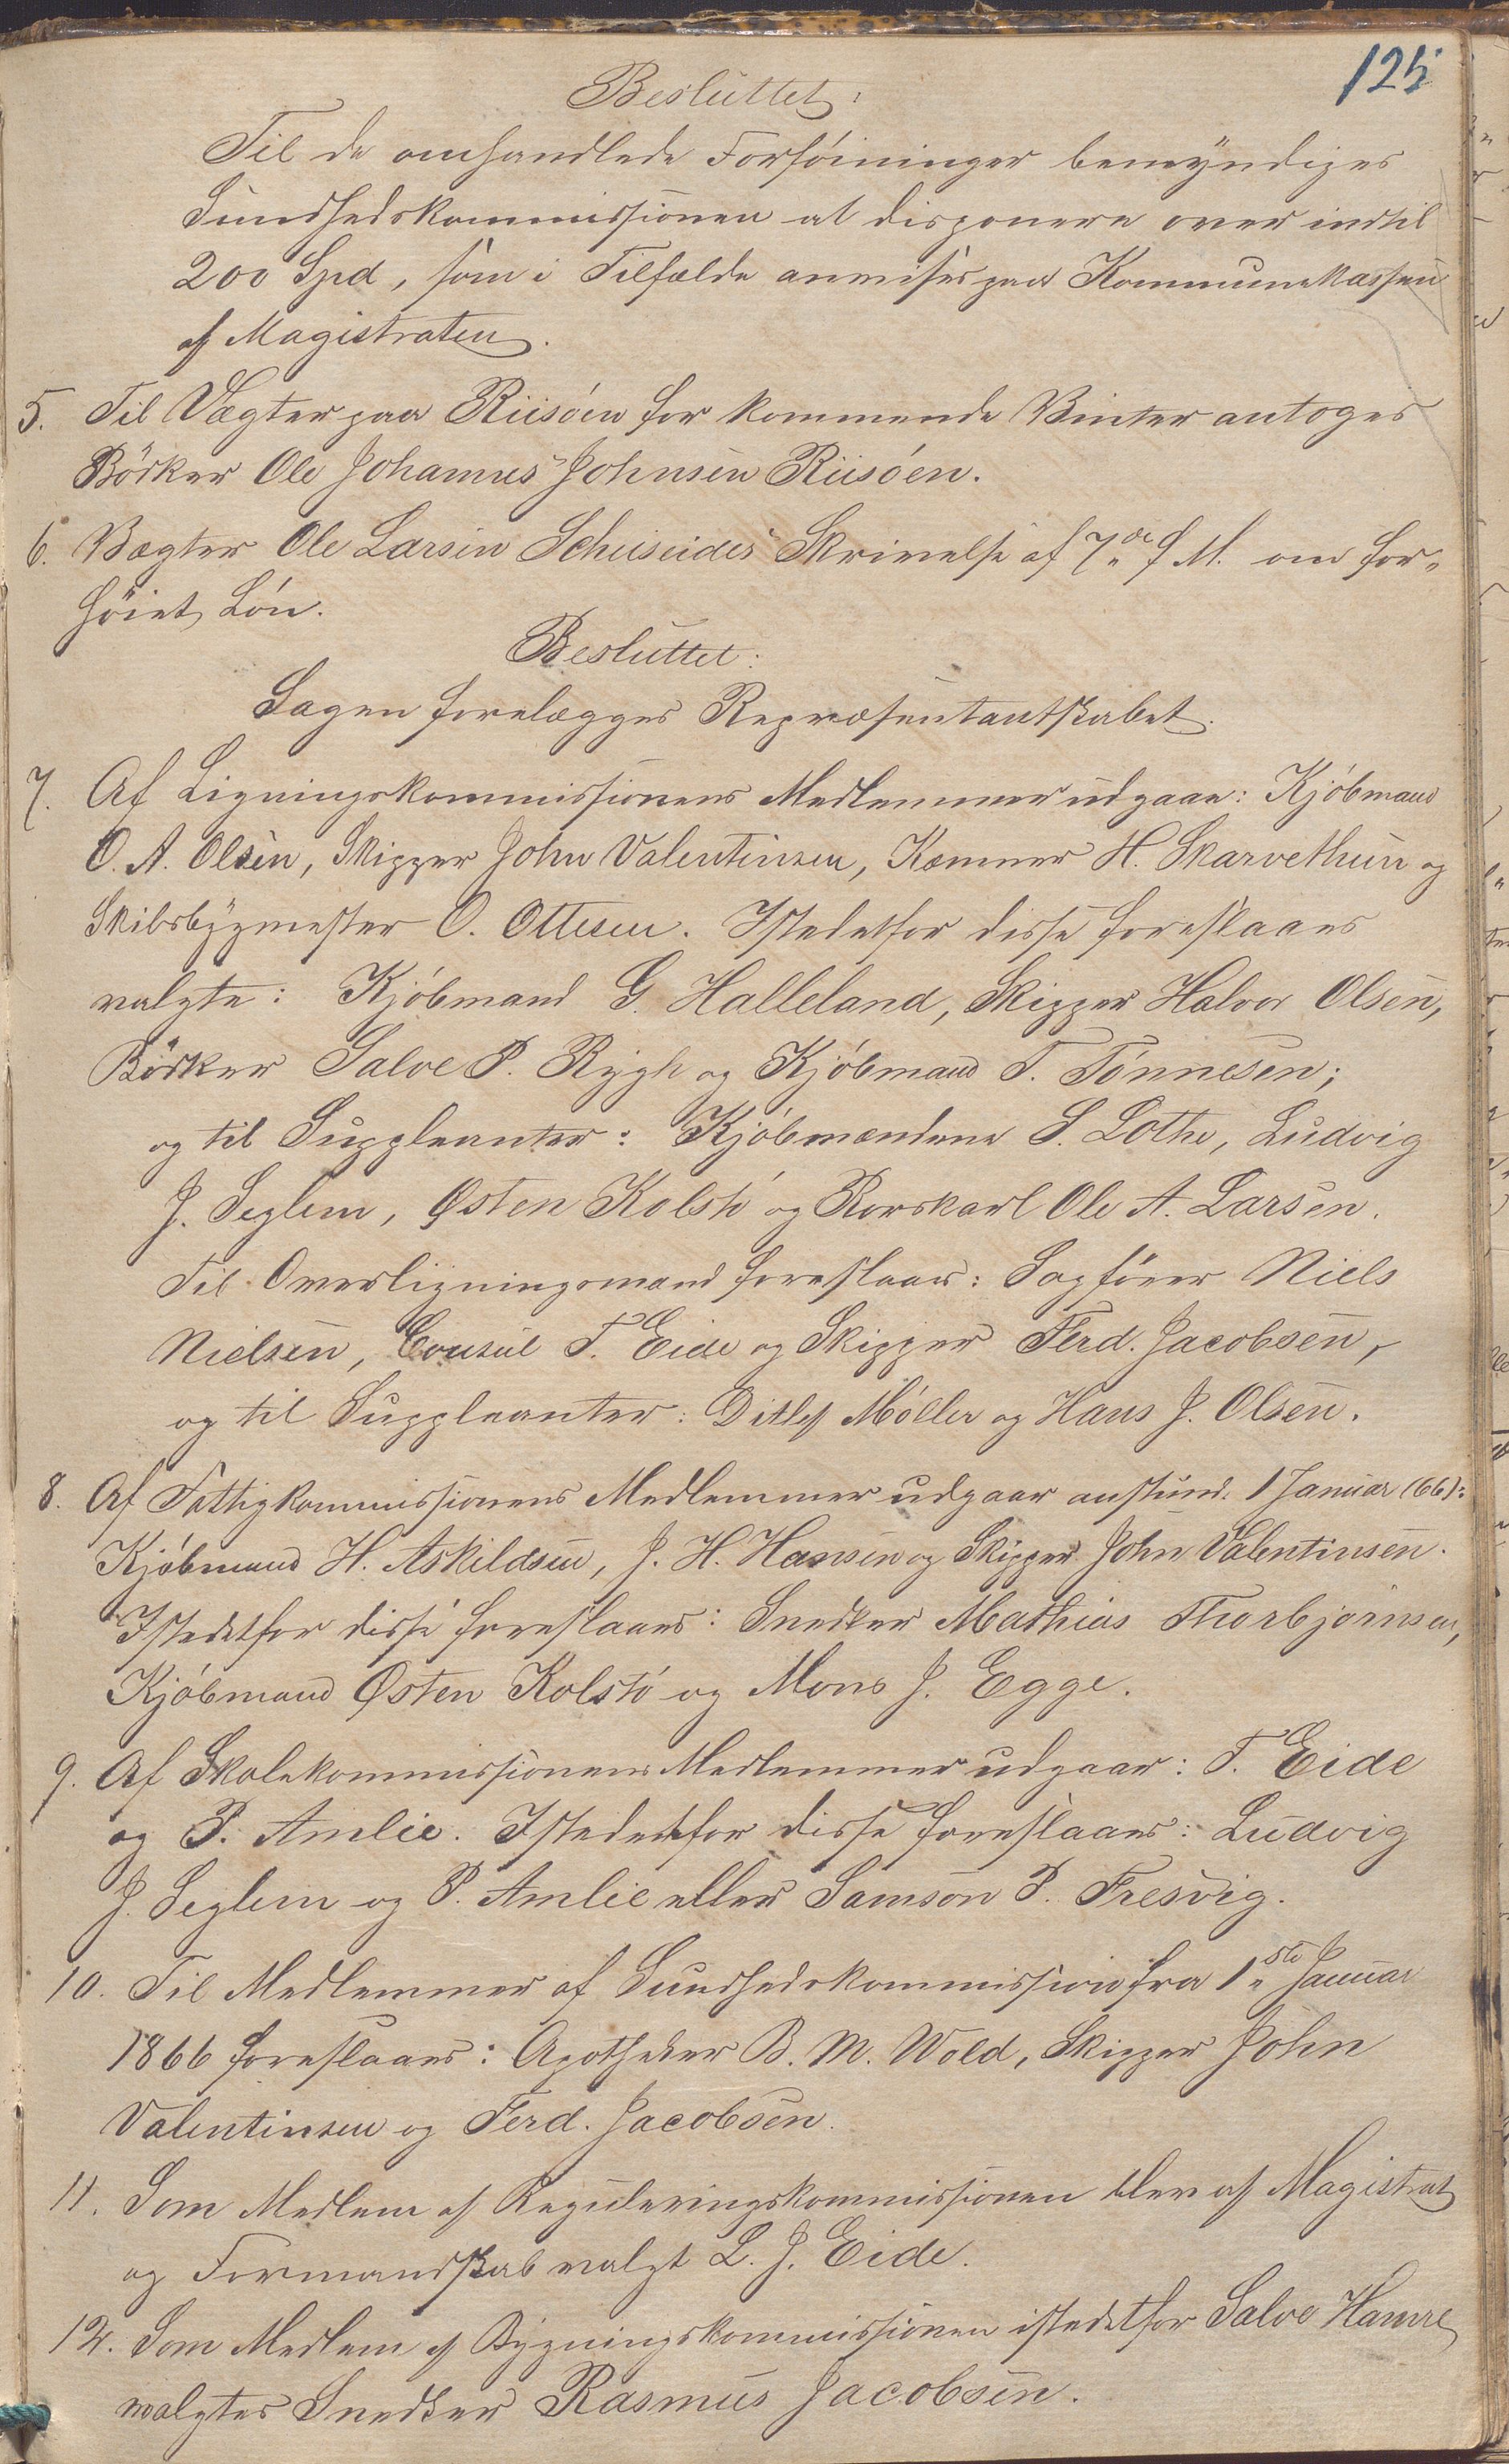 125
Besluttet:
Til de omhandlede Forføininger bemyndiges
Sundhedskommissionen at disponere over indtil
200 Spd, som i Tilfælde anvises paa Kommunekassen
af Magistraten.
5. Til Vægter paa Riisøen for kommende Vinter antoges
Bödker Ole Johannes Johnsen Riisøen.
6. Vægter Ole Larsen Skrivelse af 7de f. M. om for-
höiet Løn.
Besluttet:
Sagen forelægges Repræsentantskabet.
7. Af Ligningskommissionens Medlemmer udgaae: Kjøbmand
O. A. Olsen, Skipper John Valentinsen, Kæmner H. Skarvethun og
Skibsbygmester O. Ottesen. Istedetfor disse foreslaaes
valgte: Kjøbmand G. Halleland, Skipper Halvor Olsen,
Bödker Salve P. Rygh og Kjøbmand T. Tønnesen;
og til Suppleanter: Kjøbmændene S. Lothe, Ludvig
J. Seglem, Østen Kolstø og Rorskarl Ole A. Larsen.
Til Overligningsmænd foreslaaes: Sagfører Niels
Nielsen, Consul T. Eide og Skipper Ferd. Jacobsen,
og til Suppleanter: Ditlef Møller og Hans J. Olsen.
8. Af Fattigkommissionens Medlemmer udgaar anstund. 1 Januar (66):
Kjøbmand H. Askildsen, J. H. Hansen og Skipper John Valentinsen.
Istedetfor disse foreslaaes: Snedker Mathias Thorbjørnsen,
Kjøbmand Østen Kolstø og Mons J. Egge.
9. Af Skolekommissionens Medlemmer udgaar: T. Eide
og P. Amlie. Istedetfor disse foreslaaes: Ludvig
J. Seglem og P. Amlie eller Samson P. Fresvig.
10. Til Medlemmer af Sundhedskommission fra 1ste Januar
1866 foreslaaes: Apotheker B. M. Wold, Skipper John
Valentinsen og Ferd. Jacobsen.
11. Som Medlem af Reguleringskommissionen blev af Magistrat
og Formandskab valgt L. J. Eide.
12. Som Medlem af Bygningskommissionen istedetfor Salve Hamre
valgtes Snedker Rasmus Jacobsen.